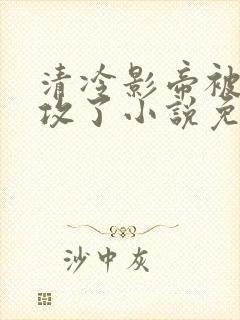 清冷影帝被
攻了小說免
沙中灰